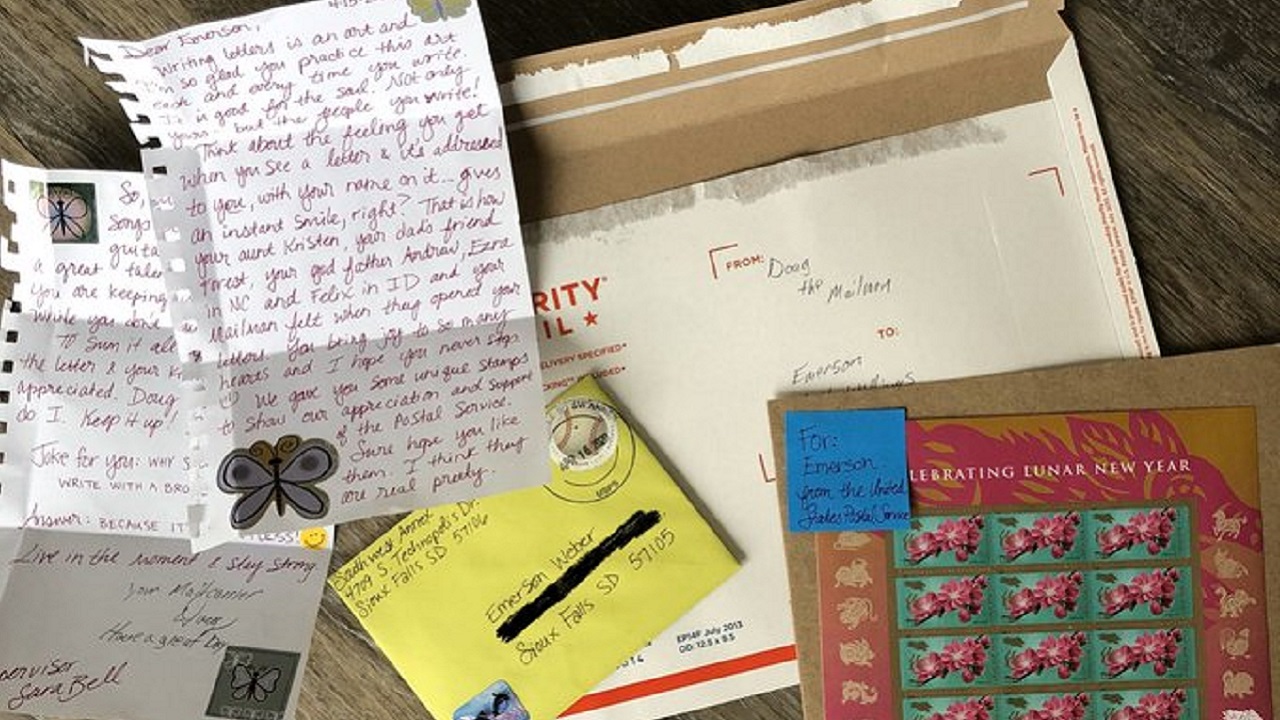 4-15-2
Dear Emerson,
Writing letters is an art and
I'm so glad you practice this art
each and every time you write.
It is good for the soul! Not only
yours, but the people you write!
Think about the feeling you get
when you see a letter & it's addressed
to you, with your name on it... gives
an instant smile, right? That is how
your aunt Kristen, your dad's friend
Forest, your god father Andrew, Ezra
in NC and Felix in ID and your
Mailman felt when they opened your
letters. You bring joy to so many
hearts and I hope you never stop.
We gave you some unique stamps
to show our appreciation and support
of the Postal Service.
Sure hope you like
them. I think they
are real pretty.
So,
songs
guita
a great talen
you are keeping
while you don't
To sum it all
the letter & your
appreciated. Doug
do I. Keep it up!
Joke for you: WHY S
WRITE WITH A BRO
Answer: BECAUSE IT'
LESS!
Live in the moment & stay strong
Your Mailcarrier
Doug
Have a great Day
pervisor
Sara Bell
RITY
IL ★
ELIVERY SPECIFIED*
FROM: Doug
the Mailman
TO:
Emerson
EP14F July 2013
OD: 12.5 x 9.5
Southwest Annex
4709 S Technopolis Dr.
Sioux Falls SD 57106
APR 16
USPS
Emerson Weber
Sioux Falls SD 57105
For:
Emerson
from the United
States Postal Service
LEBRATING LUNAR NEW YEAR